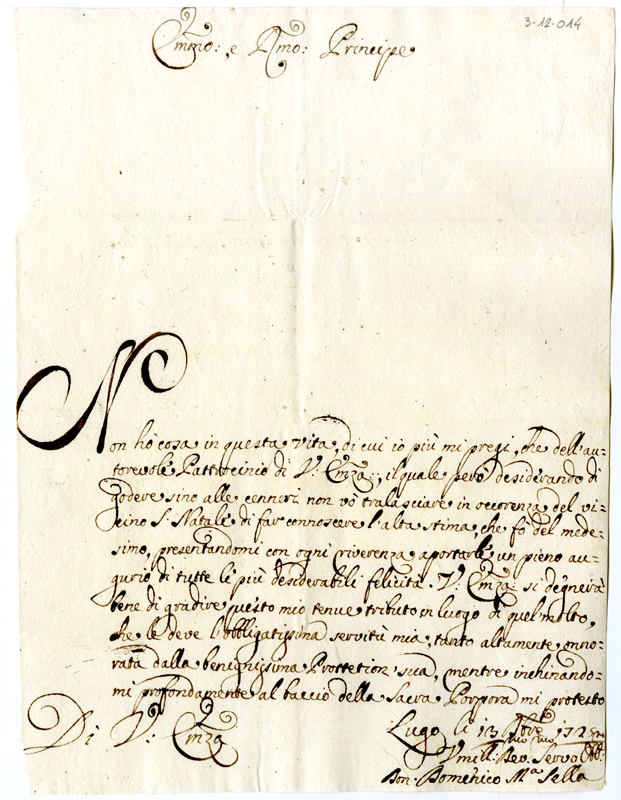 3-12-014
Emmo: e Rmo: Principe
Non hò cosa in questa vita, di cui io più mi pregi, che dell'au=
torevole Pattrocinio di V. Emza:, il quale però desiderando di
godere sino alle cenneri non vò tralasciare in occorenza del vi=
cino S. Natale di far connoscere l'alta stima, che fò del mede=
simo, presentandomi con ogni riverenza a portarle un pieno au=
gurio di tutte le più desiderabili felicità. V. Emza: si degnerà
bene di gradire questo mio tenue tributo in luogo di quel molto,
che le deve l'obbligatissima servitù mia, tanto altamente onno=
rata dalla benignissima Prottetion sua, mentre inchinando=
mi profondamente al baccio della Sacra Porpora mi protesto
Di V: Emza
Lugo li 13 172
Vmill: Dev. Servo Obb:
Don: Domenico Ma Sella